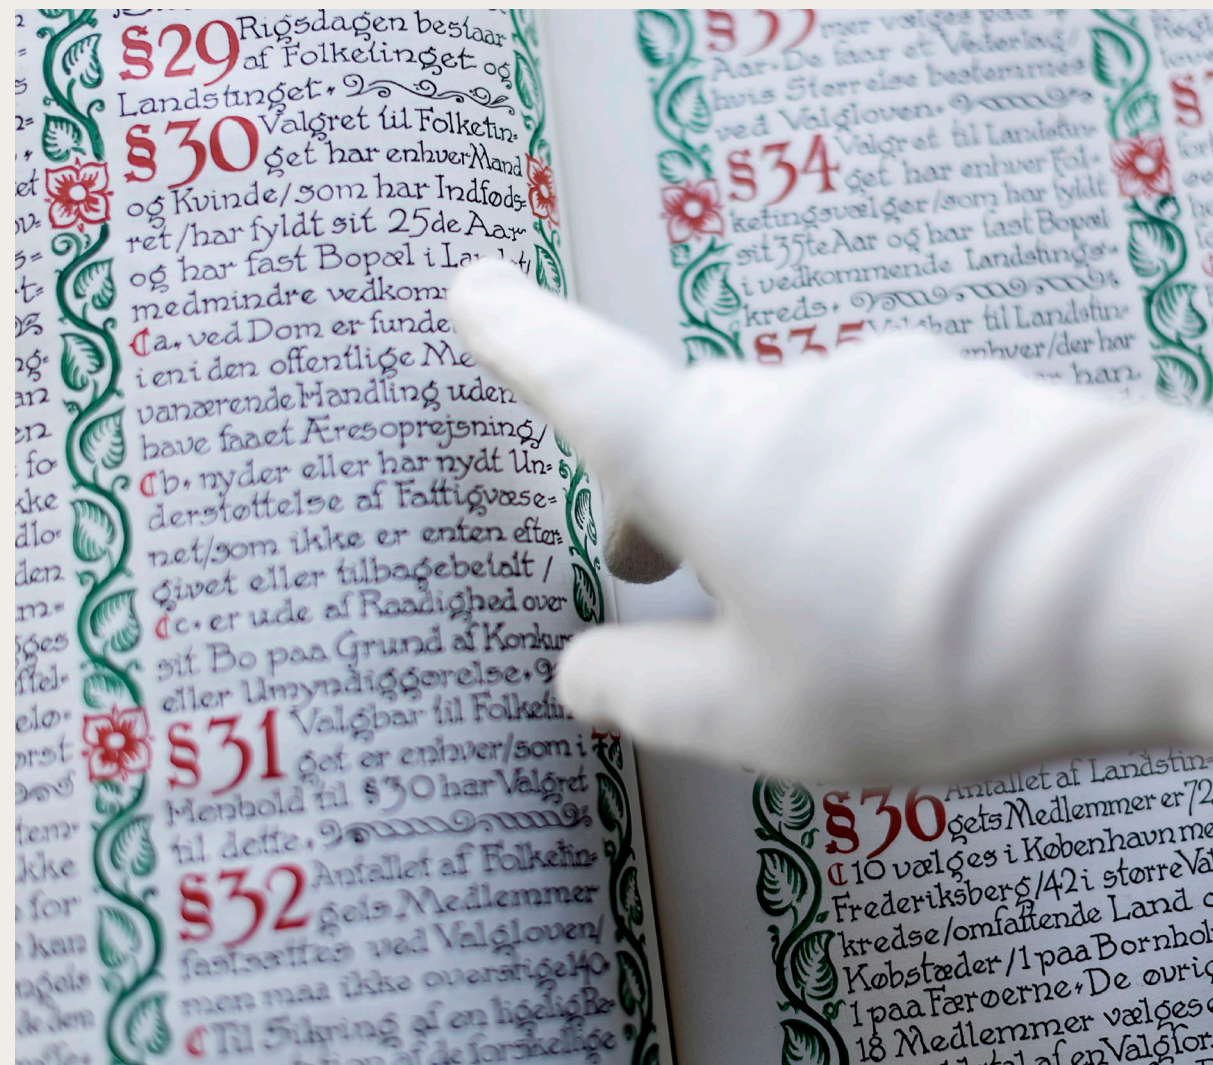 §29 Rigsdagen bestaar
af Folketinget og
Landstinget.
§30 Valgret til Folketin=
get har enhver Mand
og Kvinde/som har Indføds=
ret/har fyldt sit 25de Aar
og har fast Bopæl i
medmindre
a. ved Dom er
i en i den offentlige
vanærende Handling uden
have faaet Æresoprejsning/
b. nyder eller har nydt Un=
derstøttelse af Fattigvæse=
net/som ikke er enten efter=
givet eller tilbagebetalt/
c. er ude af Raadighed over
sit Bo paa Grund af
eller Umyndiggørelse.
§31 Valgbar til
get er enhver/som i
Henhold til §30 har Valgret
til dette.
§32 Antallet af Folketin=
gets Medlemmer
fastsættes ved Valgloven/
men maa ikke overstige 140.
Til Sikring af en ligelig
af de forskellige
mer vælges paa
Aar. De faar et Vederlag/
hvis Størrelse bestemmes
ved Valgloven.
§34 Valgret til Landstin=
get har enhver Fol=
ketingsvælger/som har fyldt
sit 35te Aar og har fast Bopæl
i vedkommende Landstings=
kreds.
§35 Valgbar til Landstin=
enhver/der har
han
§36 Antallet af Landstin=
gets Medlemmer er 72
10 vælges i København
Frederiksberg/42 i større
kredse/omfattende Land
Købstæder/1 paa
1 paa Færøerne. De
18 Medlemmer vælges
af en